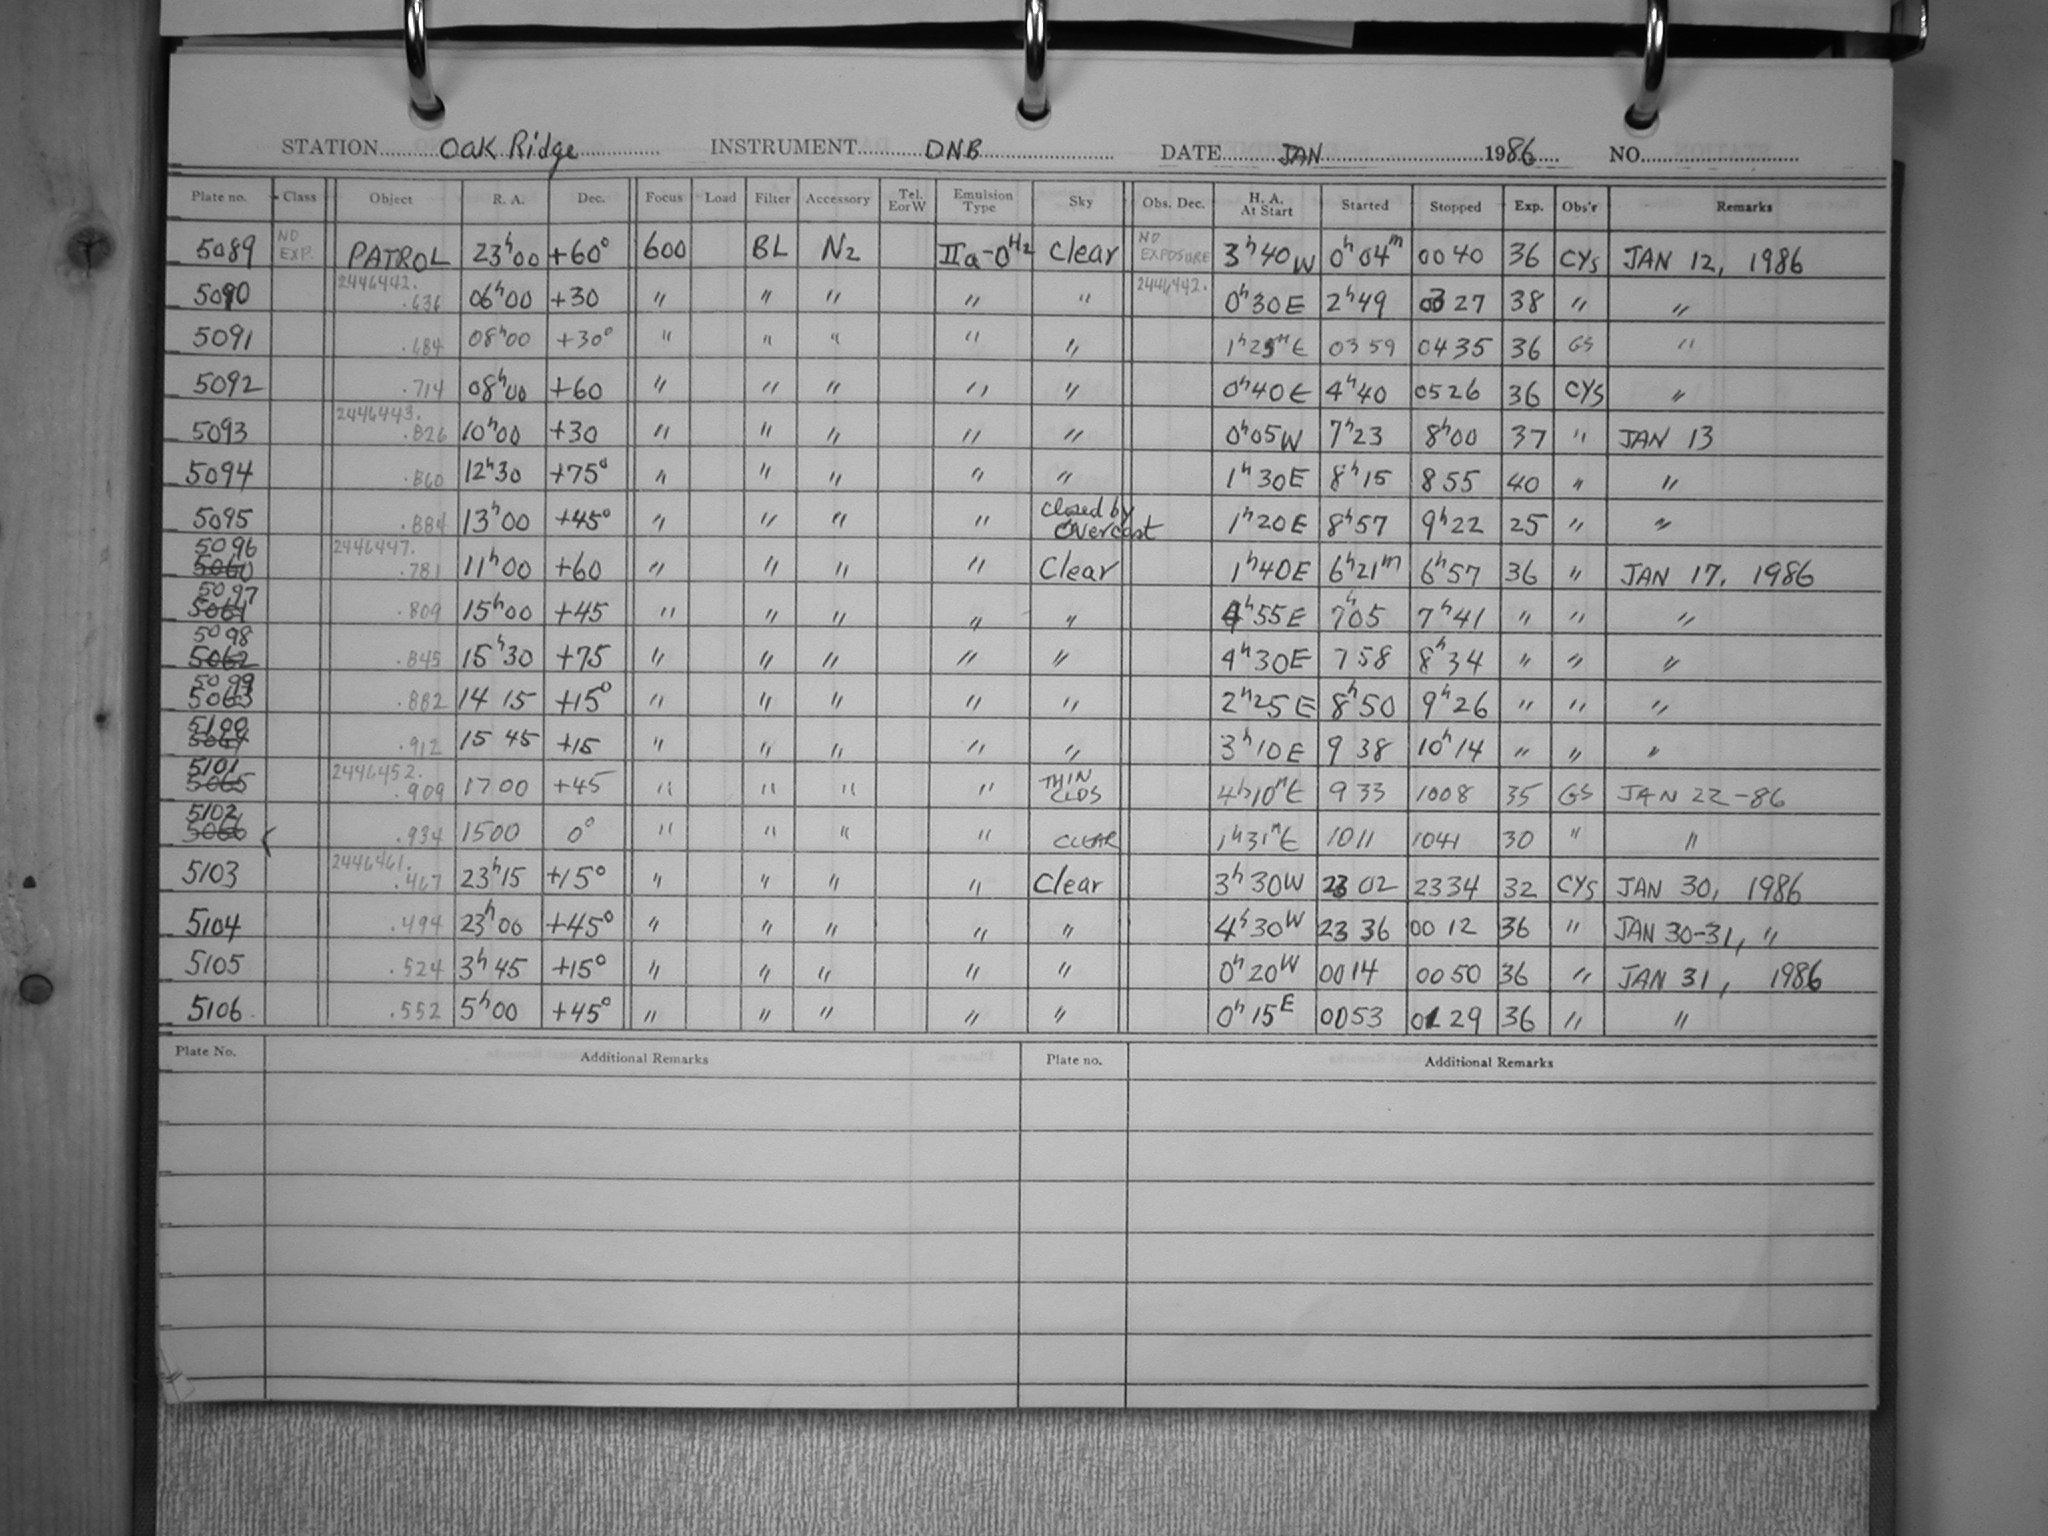 STATION Oak Ridge INSTRUMENT DNB DATE JAN 1986 NO.
Plate no. Class Object R. A. Dec. Focus Load Filter Accessory Tel. E or W Emulsion Type Sky Obs. Dec. H. A. At Start Started Stopped Exp. Obs'r Remarks
5089 NO EXP. PATROL 23h00 +60° 600 BL N2 IIa-OH2 Clear NO EXPOSURE 3h40W 0h04m 0040 36 CYS JAN 12, 1986
5090 2446442. .636 06h00 +30 " " " " " 2446442. 0h30E 2h49 0327 38 " "
5091 .684 08h00 +30° " " " " " 1h25mE 0359 0435 36 GS "
5092 .714 08h00 +60 " " " " " 0h40E 4h40 0526 36 CYS "
5093 2446443. .826 10h00 +30 " " " " " 0h05W 7h23 8h00 37 " JAN 13
5094 .860 12h30 +75° " " " " " 1h30E 8h15 855 40 " "
5095 .884 13h00 +45° " " " " closed by overcast 1h20E 8h57 9h22 25 " "
5096 5060 2446447. .781 11h00 +60 " " " " Clear 1h40E 6h21m 6h57 36 " JAN 17, 1986
5097 5061 .809 15h00 +45 " " " " " 4h55E 7h05 7h41 " " "
5098 5062 .845 15h30 +75 " " " " " 4h30E 758 8h34 " " "
5099 5063 .882 14 15 +15° " " " " " 2h25E 8h50 9h26 " " "
5100 5064 .912 15 45 +15 " " " " " 3h10E 9 38 10h14 " " "
5101 5065 2446452. .909 17 00 +45 " " " " THIN CLDS 4h10mE 9 33 1008 35 GS JAN 22-86
5102 5066 .934 1500 0° " " " " CLEAR 1h31mE 1011 1041 30 " "
5103 2446461. .467 23h15 +15° " " " " Clear 3h30W 23 02 2334 32 CYS JAN 30, 1986
5104 .494 23h00 +45° " " " " " 4h30W 23 36 00 12 36 " JAN 30-31, "
5105 .524 3h45 +15° " " " " " 0h20W 0014 0050 36 " JAN 31, 1986
5106 .552 5h00 +45° " " " " " 0h15E 0053 0129 36 " "
Plate No. Additional Remarks Plate no. Additional Remarks